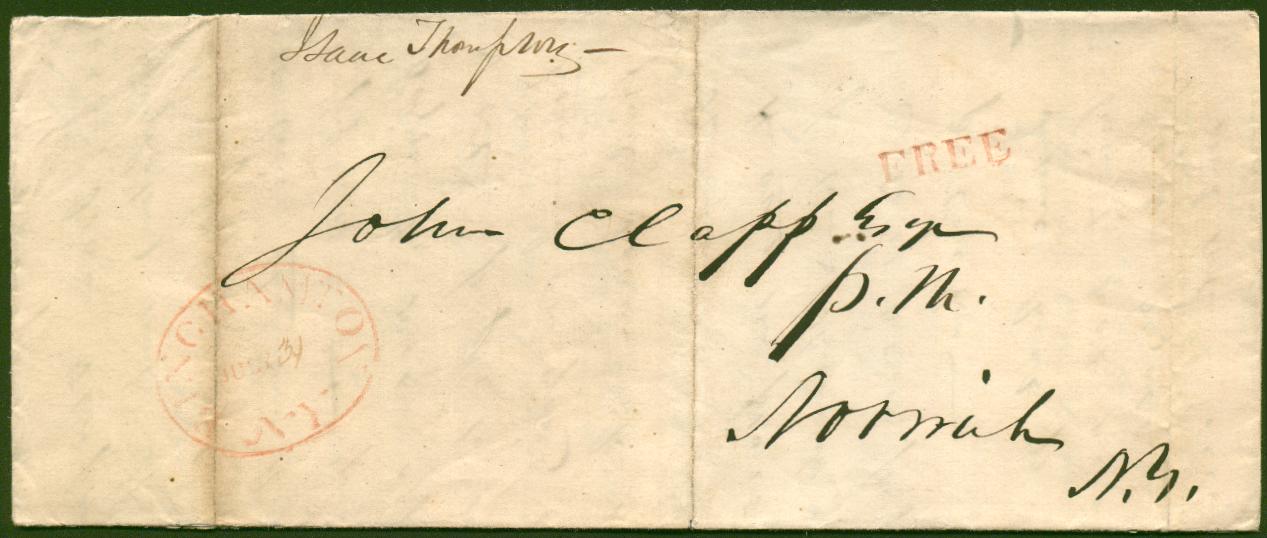 Isaac Thompson
FREE
John Clapp Esqr
P. M.
Norwich
N.Y.
BINGHAMTON
N.Y.